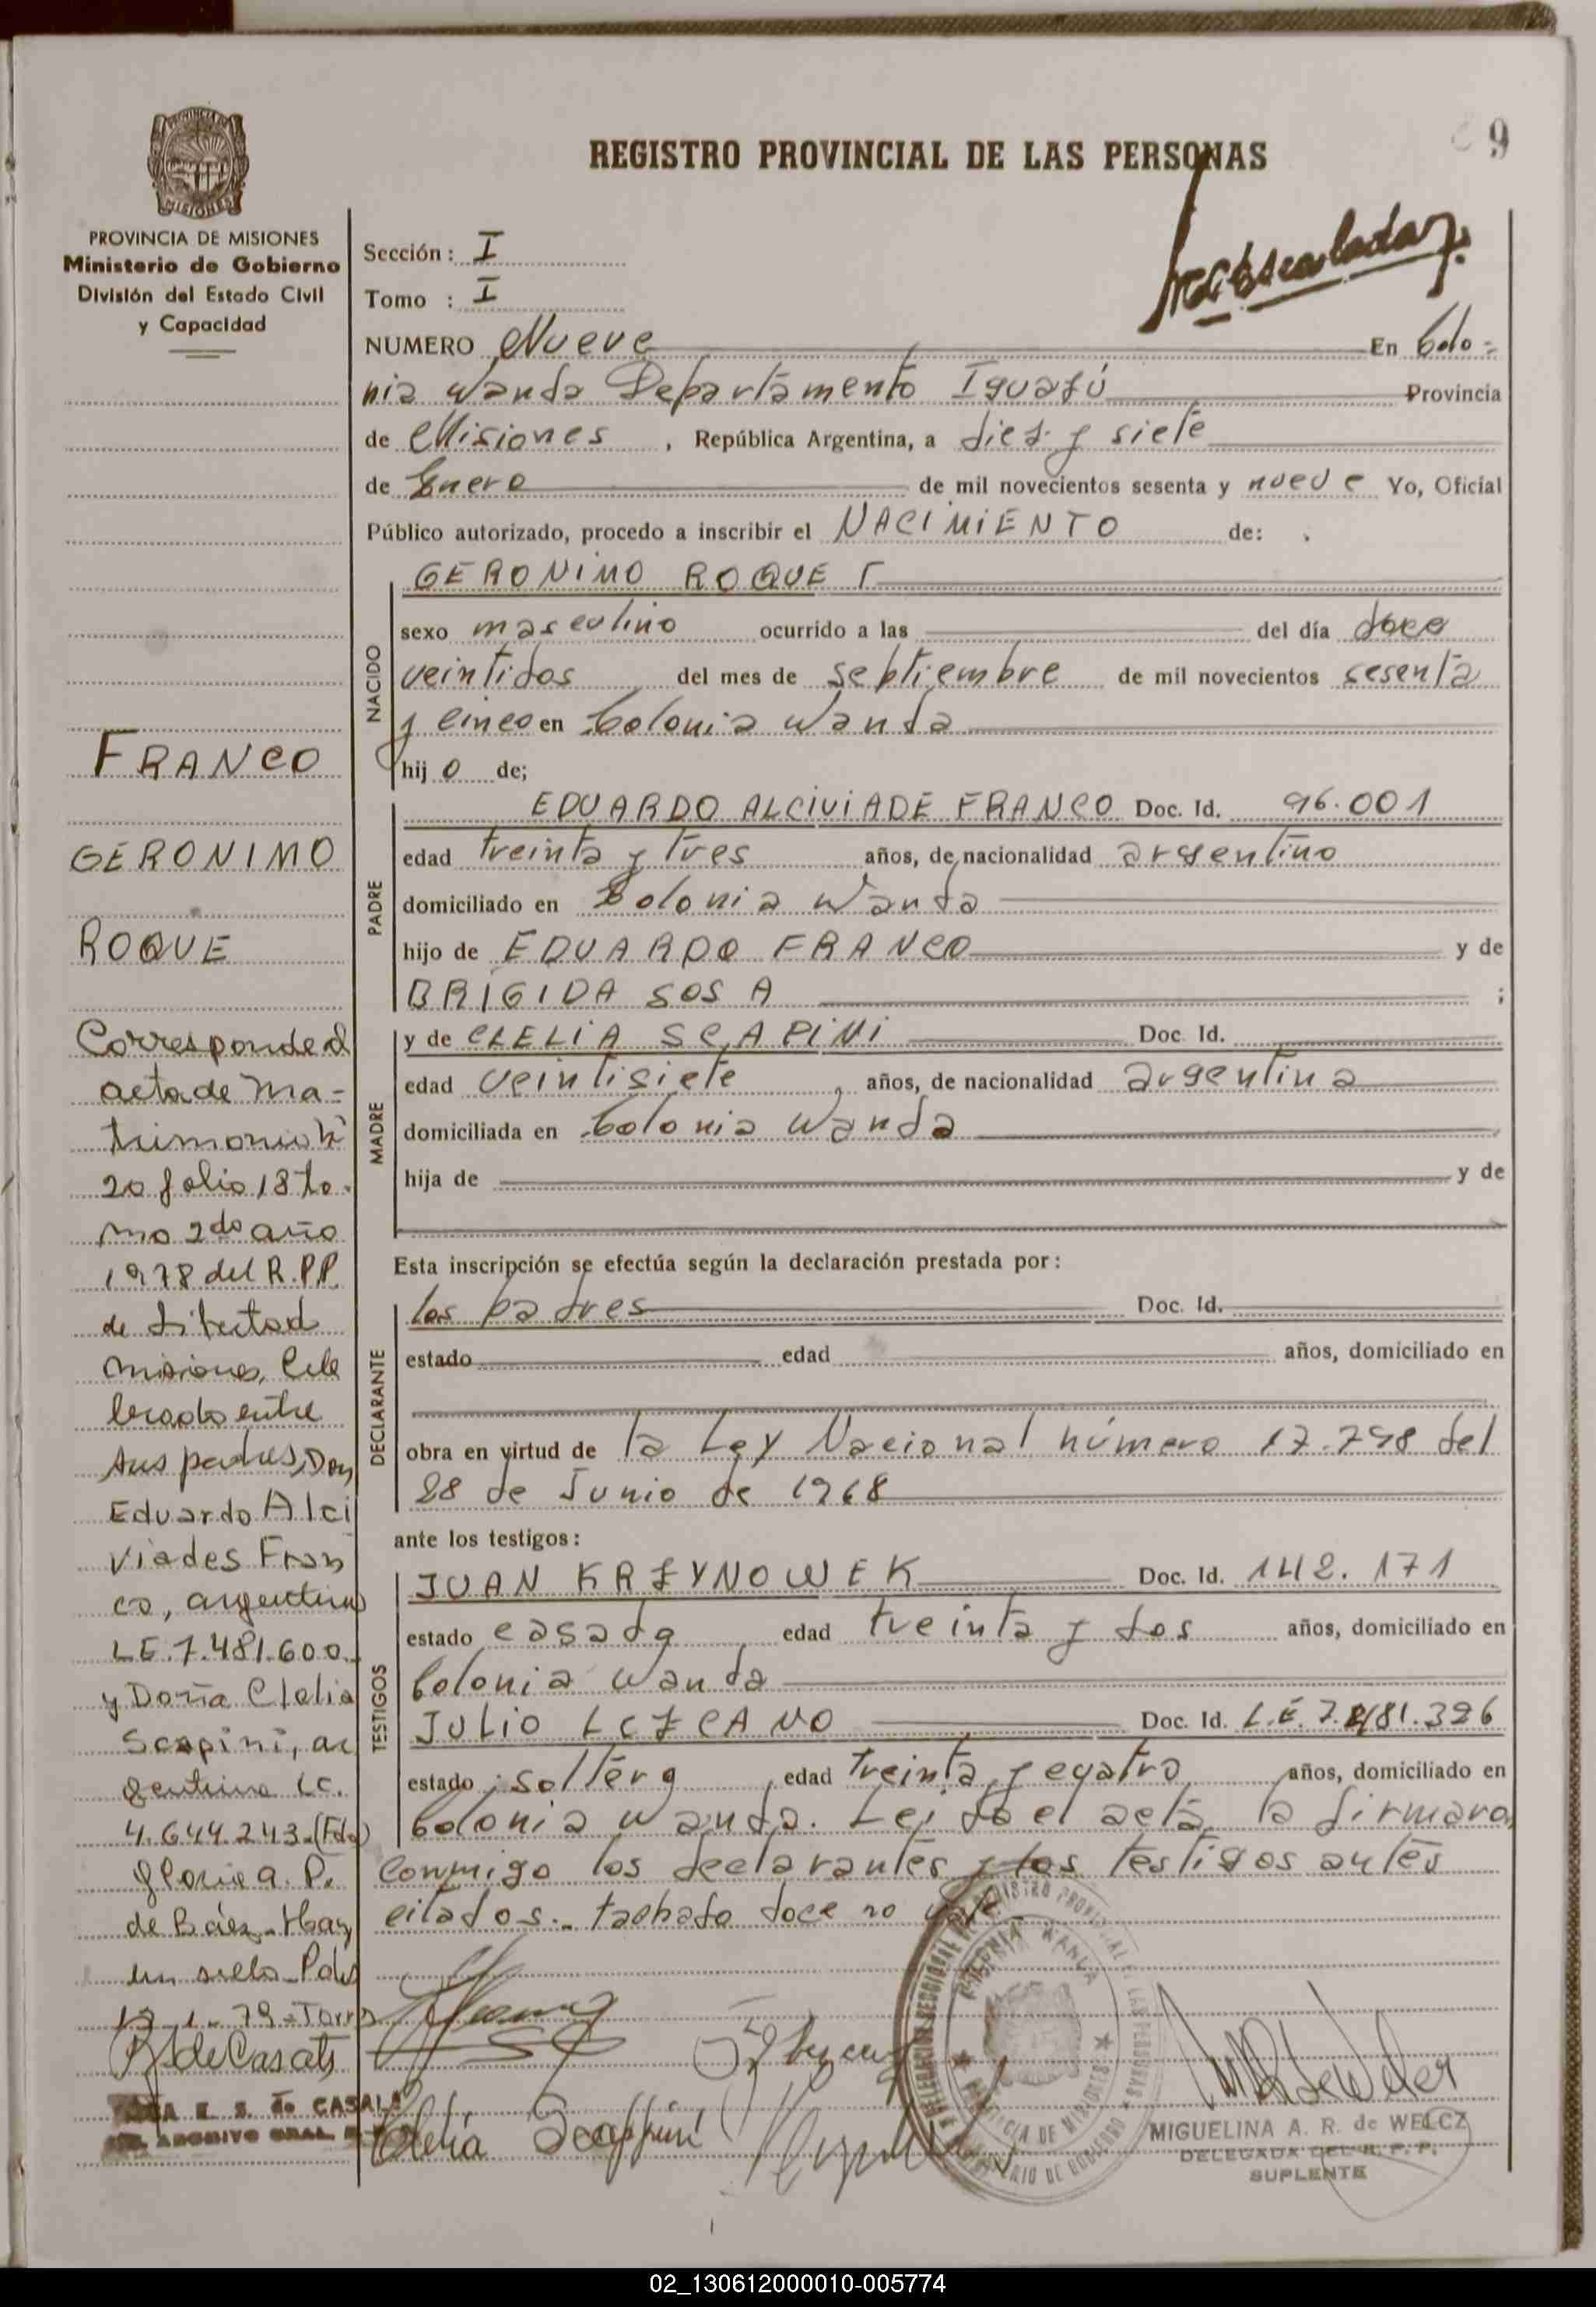 9
REGISTRO PROVINCIAL DE LAS PERSONAS
PROVINCIA DE MISIONES
Ministerio de Gobierno
División del Estado Civil
y Capacidad
Sección: I
Tomo : I
NUMERO Nueve En Colo=
nia Wanda Departamento Iguazú Provincia
de Misiones, República Argentina, a diez y siete
de Enero de mil novecientos sesenta y nueve Yo, Oficial
Público autorizado, procedo a inscribir el NACIMIENTO de:
NACIDO
GERONIMO ROQUE
sexo masculino ocurrido a las del día doce
veintidos del mes de septiembre de mil novecientos sesenta
y cinco en Colonia Wanda
hijo de;
PADRE
EDUARDO ALCIVIADE FRANCO Doc. Id. 96.001
edad treinta y tres años, de nacionalidad argentino
domiciliado en Colonia Wanda
hijo de EDUARDO FRANCO y de
BRIGIDA SOSA ;
MADRE
y de CLELIA SCAPINI Doc. Id.
edad veintisiete años, de nacionalidad argentina
domiciliada en Colonia Wanda
hija de y de
Esta inscripción se efectúa según la declaración prestada por:
DECLARANTE
los padres Doc. Id.
estado edad años, domiciliado en
obra en virtud de la Ley Nacional número 17.798 del
28 de Junio de 1968
ante los testigos:
TESTIGOS
JUAN KRZYNOWEK Doc. Id. 142.171
estado casado edad treinta y dos años, domiciliado en
Colonia Wanda
JULIO LEZCANO Doc. Id. L.E. 7. 81.326
estado soltero, edad treinta y cuatro años, domiciliado en
Colonia Wanda. Leida el acta, la firmaron
conmigo los declarantes y los testigos antes
citados.- tachado doce no vale
FRANCO
GERONIMO
ROQUE
Corresponde al
acta de Ma-
trimonio Nº
20 folio 18 to.
mo 2do año
1978 del R.P.P.
de Libertad
Misiones, Cele
brado entre
sus padres, Don
Eduardo Alci
viades Fran
co, argentino
L.E. 7.481.600
y Doña Clelia
Scapini, ar
gentina L.C.
4.644.243.-(Fdo)
Gloria A. P.
de Báez- Hay
un sello- Pdas
de Casals
E. S. de CASALS
ARCHIVO GRAL.
Clelia Scappini
COLONIA WANDA
PROVINCIA DE MISIONES
MIGUELINA A. R. de WELCZ
DELEGADA DEL R. P. P.
SUPLENTE
02_130612000010-005774